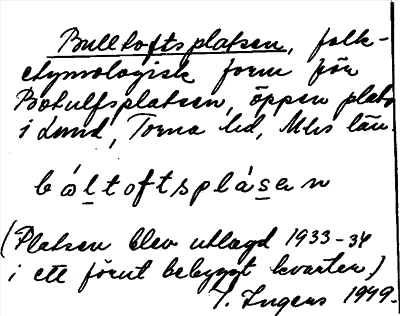 Bulltoftsplatsen, folk-
etymologisk form för
Botulfsplatsen, öppen plats
i Lund, Torna hd, Mlhs län.
bál̲toftsplás̲an
(Platsen blev utlagd 1933-34
i ett förut bebyggt kvarter.)
I. Ingers 1949.